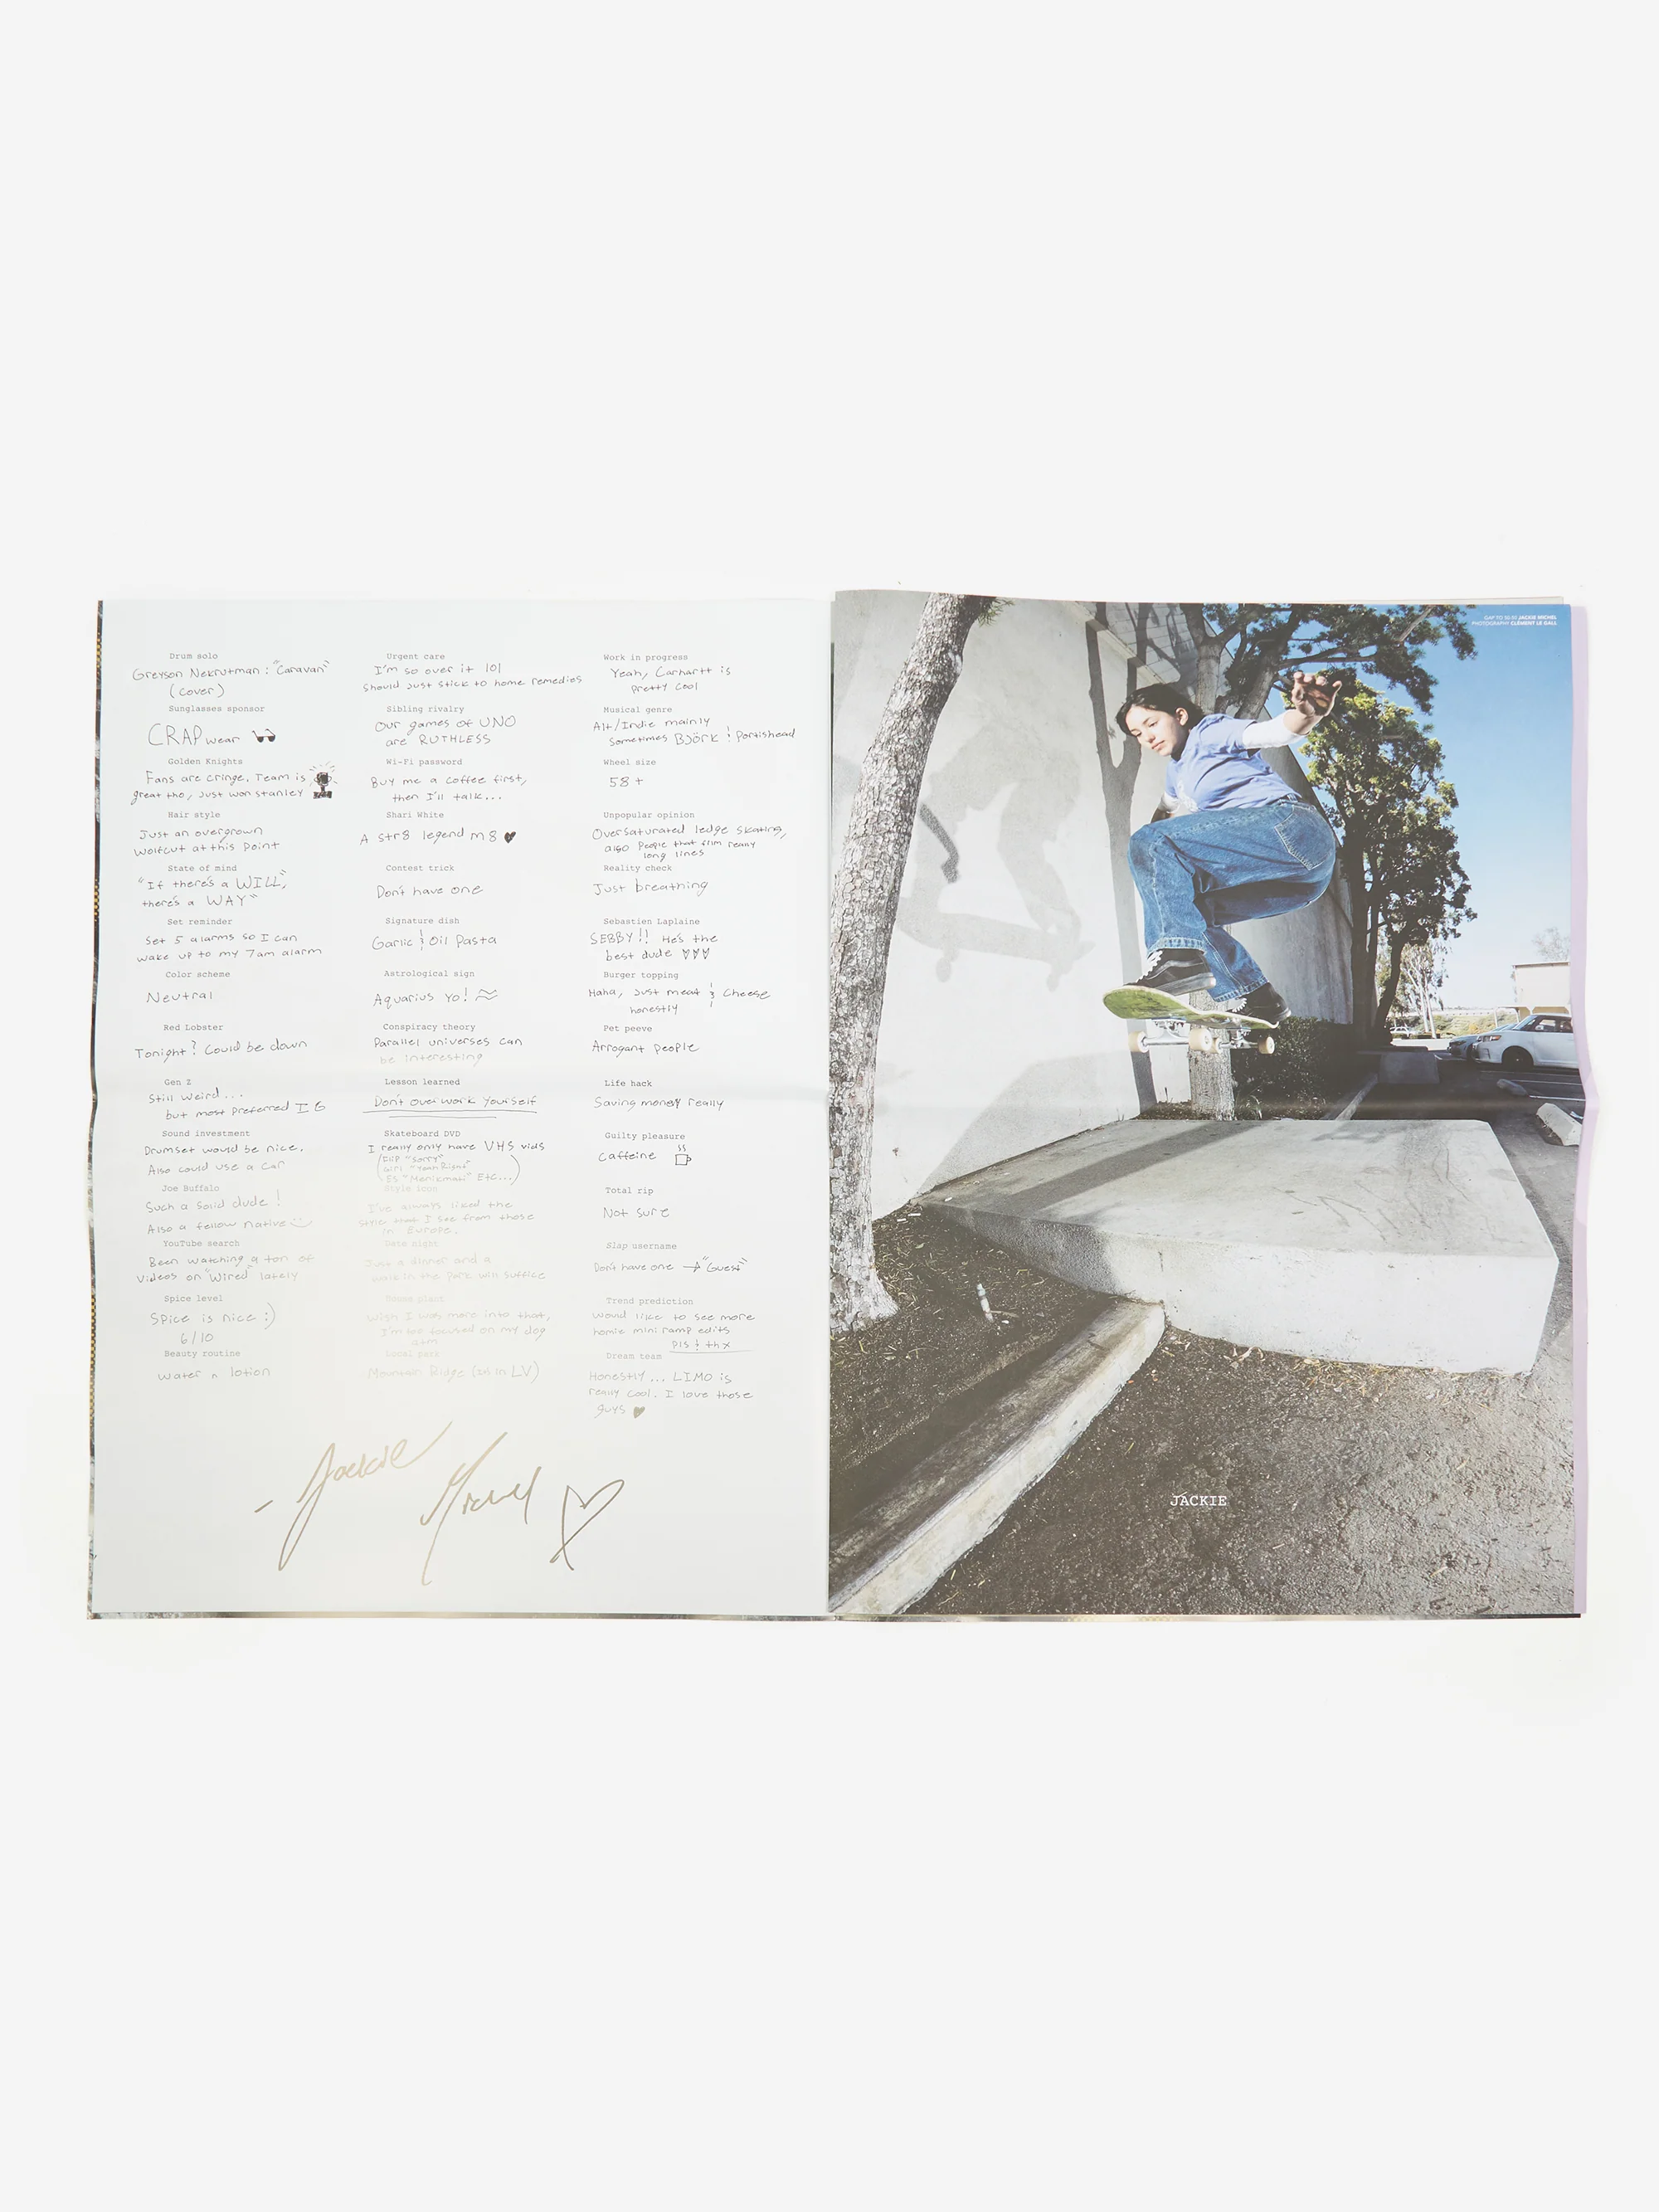 Drum solo
Greyson Nekrutman: "Caravan"
(cover)
Sunglasses sponsor
CRAP wear
Golden Knights
Fans are cringe. Team is
great tho, just won stanley
Hair style
Just an overgrown
Wolfcut at this point
State of mind
"If there's a WILL,
there's a WAY"
Set reminder
Set 5 alarms so I can
wake up to my 7am alarm
Color scheme
Neutral
Red Lobster
Tonight? Could be down
Gen Z
Still weird...
but most preferred IG
Sound investment
Drumset would be nice.
Also could use a car
Joe Buffalo
Such a solid dude!
Also a fellow native
YouTube search
Been watching a ton of
videos on "Wired" lately
Spice level
Spice is nice :)
6/10
Beauty routine
Water n lotion
Urgent care
I'm so over it lol
should just stick to home remedies
Sibling rivalry
Our games of UNO
are RUTHLESS
Wi-Fi password
Buy me a coffee first,
then I'll talk...
Shari White
A str8 legend m8 ♥
Contest trick
Don't have one
Signature dish
Garlic & Oil Pasta
Astrological sign
Aquarius Yo!
Conspiracy theory
Parallel universes can
be interesting
Lesson learned
Don't overwork yourself
Skateboard DVD
I really only have VHS vids
(Flip "Sorry"
Girl "Yeah Right"
ES "Menikmati" Etc...)
Style icon
I've always liked the
style that I see from those
in Europe.
Date night
Just a dinner and a
walk in the park will suffice
House plant
Wish I was more into that,
I'm too focused on my dog
atm
Local park
Mountain Ridge (in LV)
Work in progress
Yeah, Carhartt is
pretty cool
Musical genre
Alt/Indie mainly
sometimes Björk & Portishead
Wheel size
58+
Unpopular opinion
Oversaturated ledge skating,
also People that film really
long lines
Reality check
Just breathing
Sebastien Laplaine
SEBBY!! He's the
best dude ♥♥♥
Burger topping
Haha, just meat & cheese
honestly
Pet peeve
Arrogant people
Life hack
Saving money really
Guilty pleasure
Caffeine
Total rip
Not sure
Slap username
Don't have one → "Guest"
Trend prediction
Would like to see more
homie mini ramp edits
pls & thx
Dream team
Honestly... LIMO is
really cool. I love those
guys ♥
- Jackie
Michel
GAP TO 50-50 JACKIE MICHEL
PHOTOGRAPHY CLÉMENT LE GALL
JACKIE